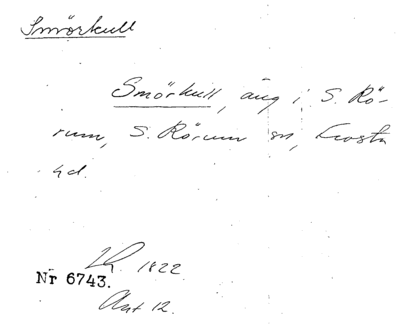 Smörkull
Smörkull, äng i S. Rö-
rum, S. Rörum sn, Frosta
hd.
1822.
Nr 6743.
Akt 12.